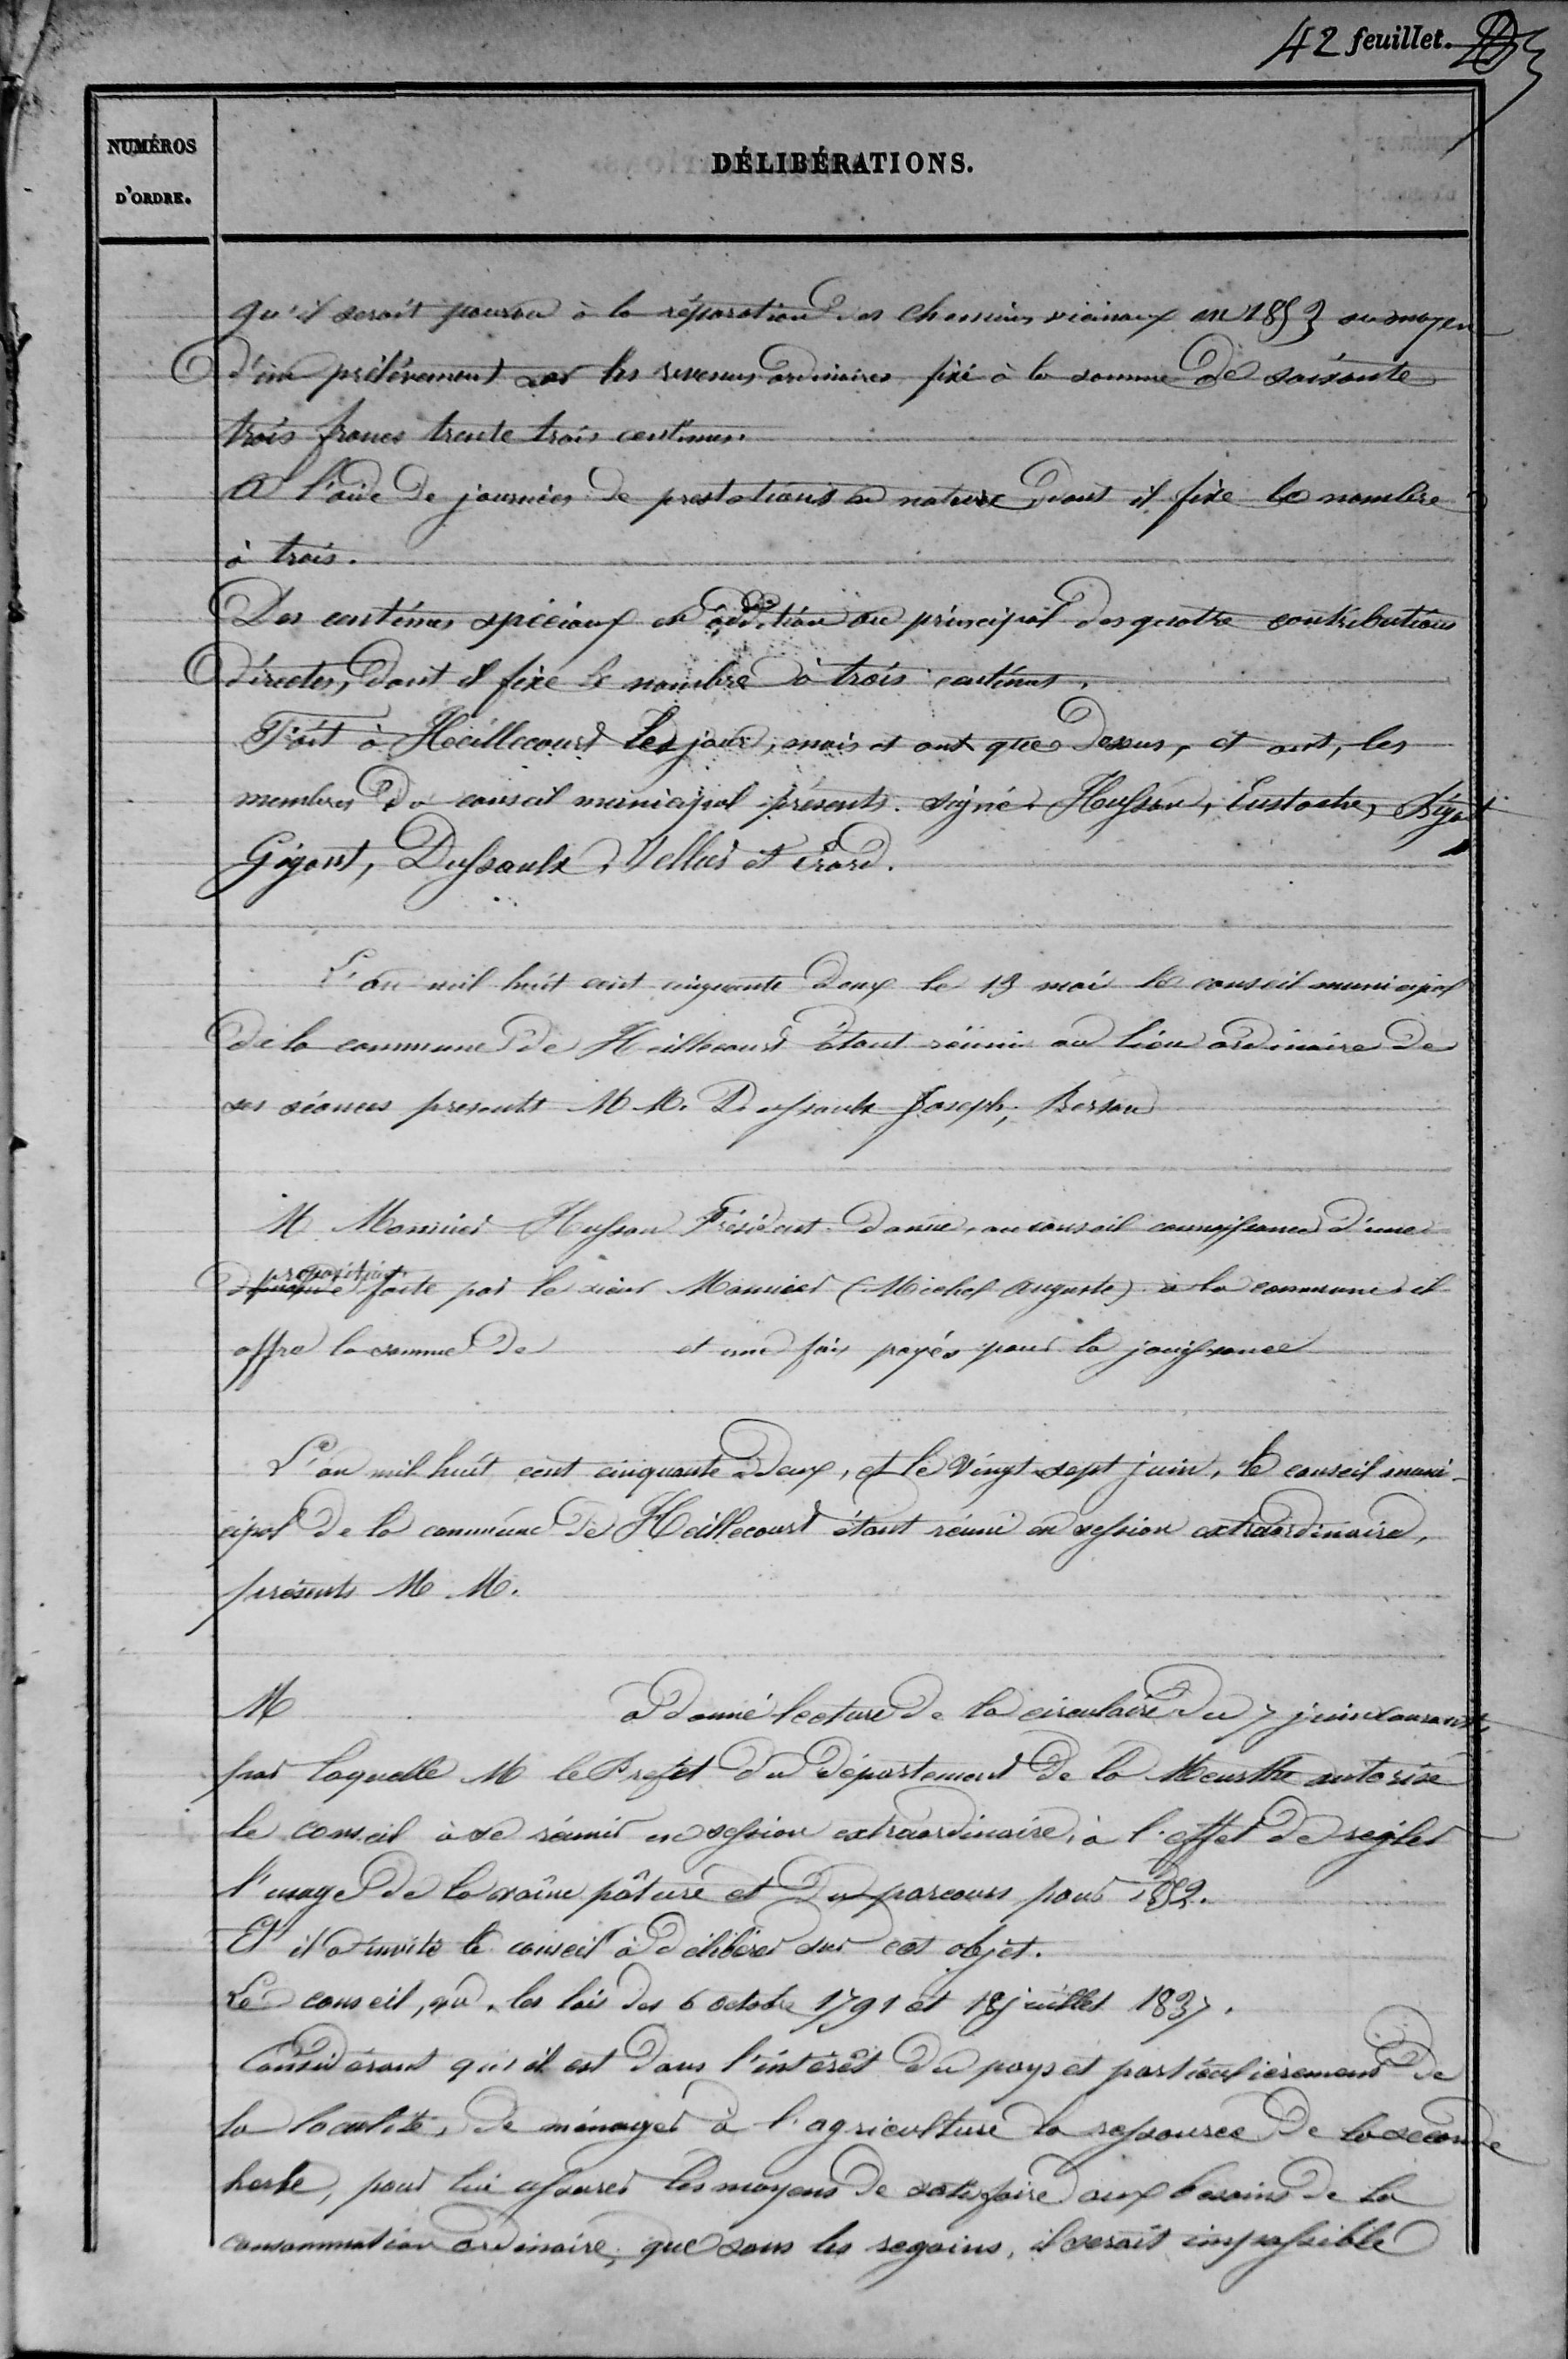 42 feuillet.
NUMÉROS
D'ORDRE.
DÉLIBÉRATIONS.
qu'il serait pourvu à la réparation des chemins vicinaux en 1853 au moyen
d'un prélèvement sur les revenus ordinaires fixé à la somme de soixante
trois francs trente trois centimes.
A l'aide de journées de prestations en nature dont il fixe le nombre
à trois.
Des centimes spéciaux en addition au principal des quatre contributions
directes, dont il fixe le nombre à trois centimes.
Fait à Heillecourt les jour, mois et ant que dessus, et ont, les
membres du conseil municipal présents. signé. Husson, Eustache, Bigot
Gigant, Dussaulx, Vellier et Erard.
L'an mil huit cent cinquante deux le 13 mai le conseil municipal
de la commune de Heillecourt étant réuni au lieu ordinaire de
ses séances presents M M. Dussaulx Joseph, Berson
M Monnier Husson Président donne au conseil connaissance d'une
proposition
faite par le sieur Monnier (Michel Auguste) à la commune il
offre la somme de et une fois payés pour la jouissance
L'an mil huit cent cinquante deux, et le vingt sept juin, le conseil muni-
cipal de la commune de Heillecourt étant réuni en session extraordinaire,
présents M M.
M a donné lecture de la circulaire du 7 juin courant,
par laquelle M le Prefet du département de la Meurthe autorise
le conseil à se réunir en session extraordinaire, à l'effet de régler
l'usage de la vaine pâture et du parcours pour 1852.
Et il a invité le conseil à délibérer sur cet objet.
Le conseil, vu les lois des 6 octobre 1791 et 18 juillet 1837.
Considérant qu'il est dans l'intérêt du pays et particulièrement de
la localité, de ménager à l'agriculture la ressource de la seconde
herbe, pour lui assurer les moyens de satisfaire aux besoins de la
consommation ordinaire, que sans les regains, il serait impossible